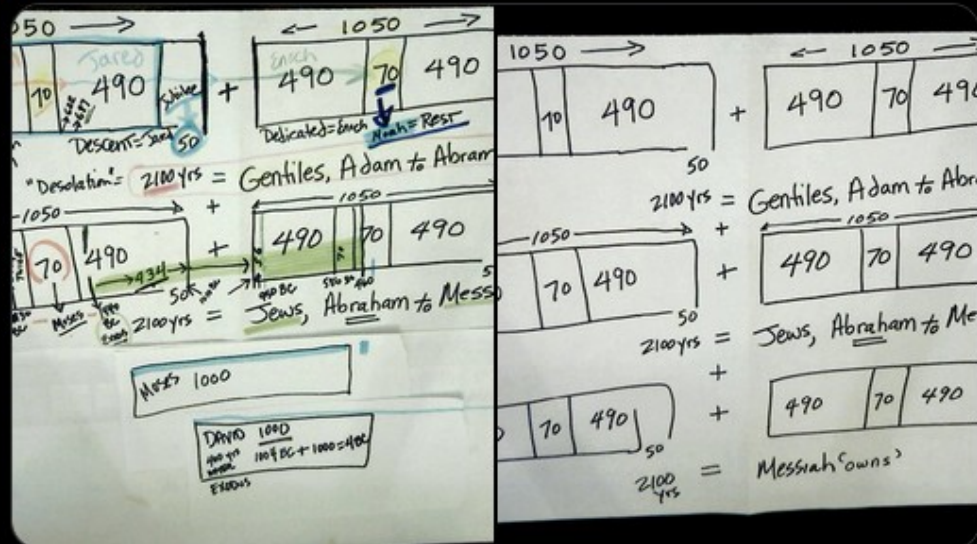 050
1050
Jared
Enoch
70
490
Jubilee
+
490
70
490
50
Descent=Jared
Dedicated=Enoch
Noah=REST
"Desolation"=
2100 yrs = Gentiles, Adam to Abram
+
1050
1050
70
490
434
+
490
70
490
Moses
50
950 BC
2100 yrs = Jews, Abraham to Mess
Moses 1000
DAVID 1000
1004 BC + 1000 = 4BC
EXODUS
1050
1050
70
490
+
490
70
490
50
2100 yrs = Gentiles, Adam to Abra
+
1050
1050
70
490
+
490
70
490
50
2100 yrs = Jews, Abraham to Me
+
70
490
+
490
70
490
50
2100 yrs = Messiah 'owns'